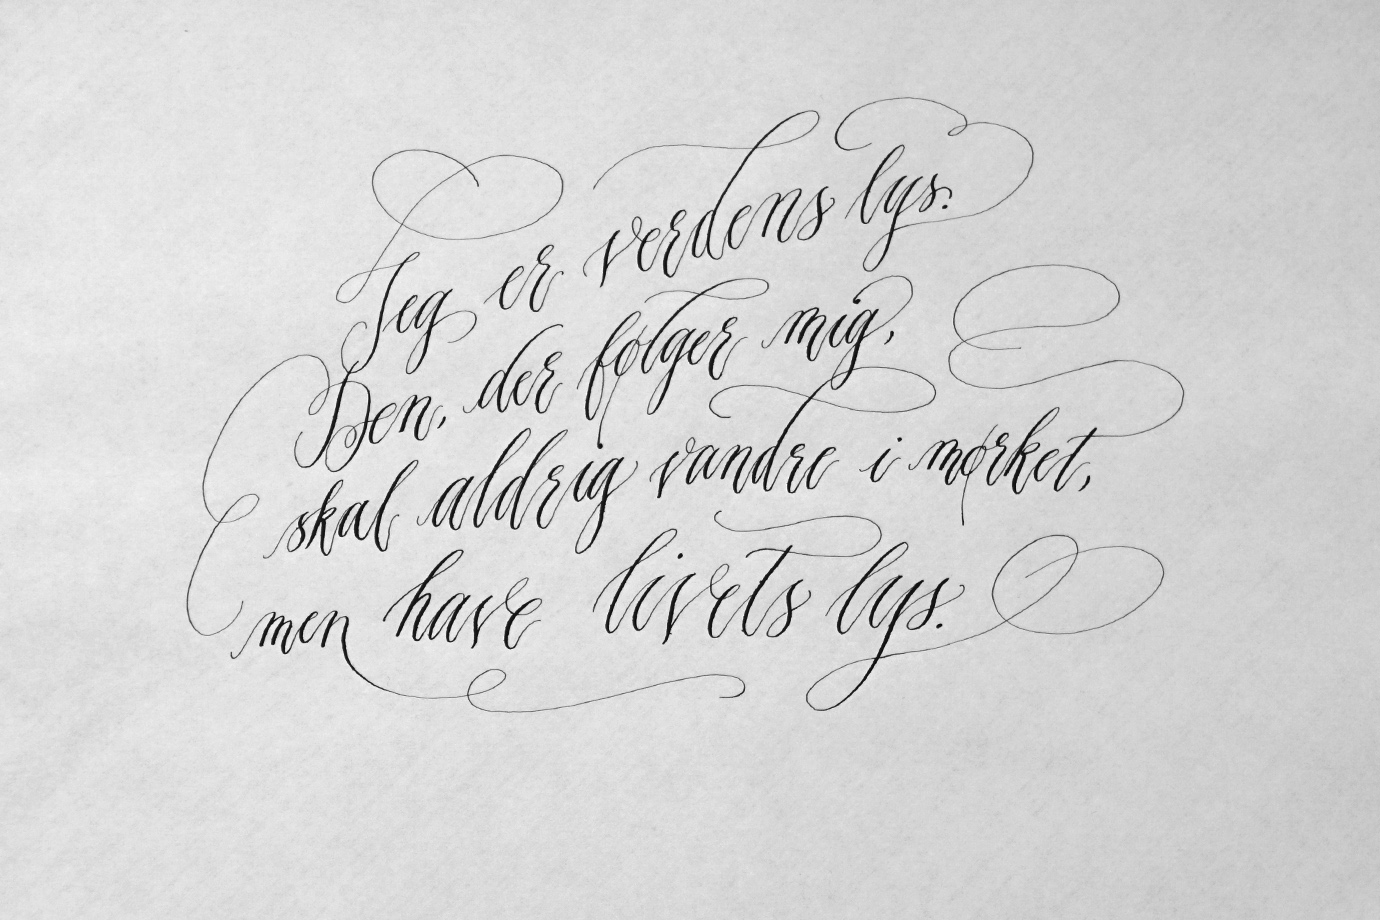 Jeg er verdens lys.
Den, der følger mig,
skal aldrig vandre i mørket,
men have livets lys.